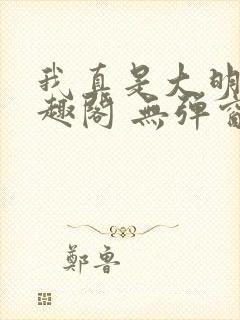 我真是大明
趣阁 無彈窗
鄭魯